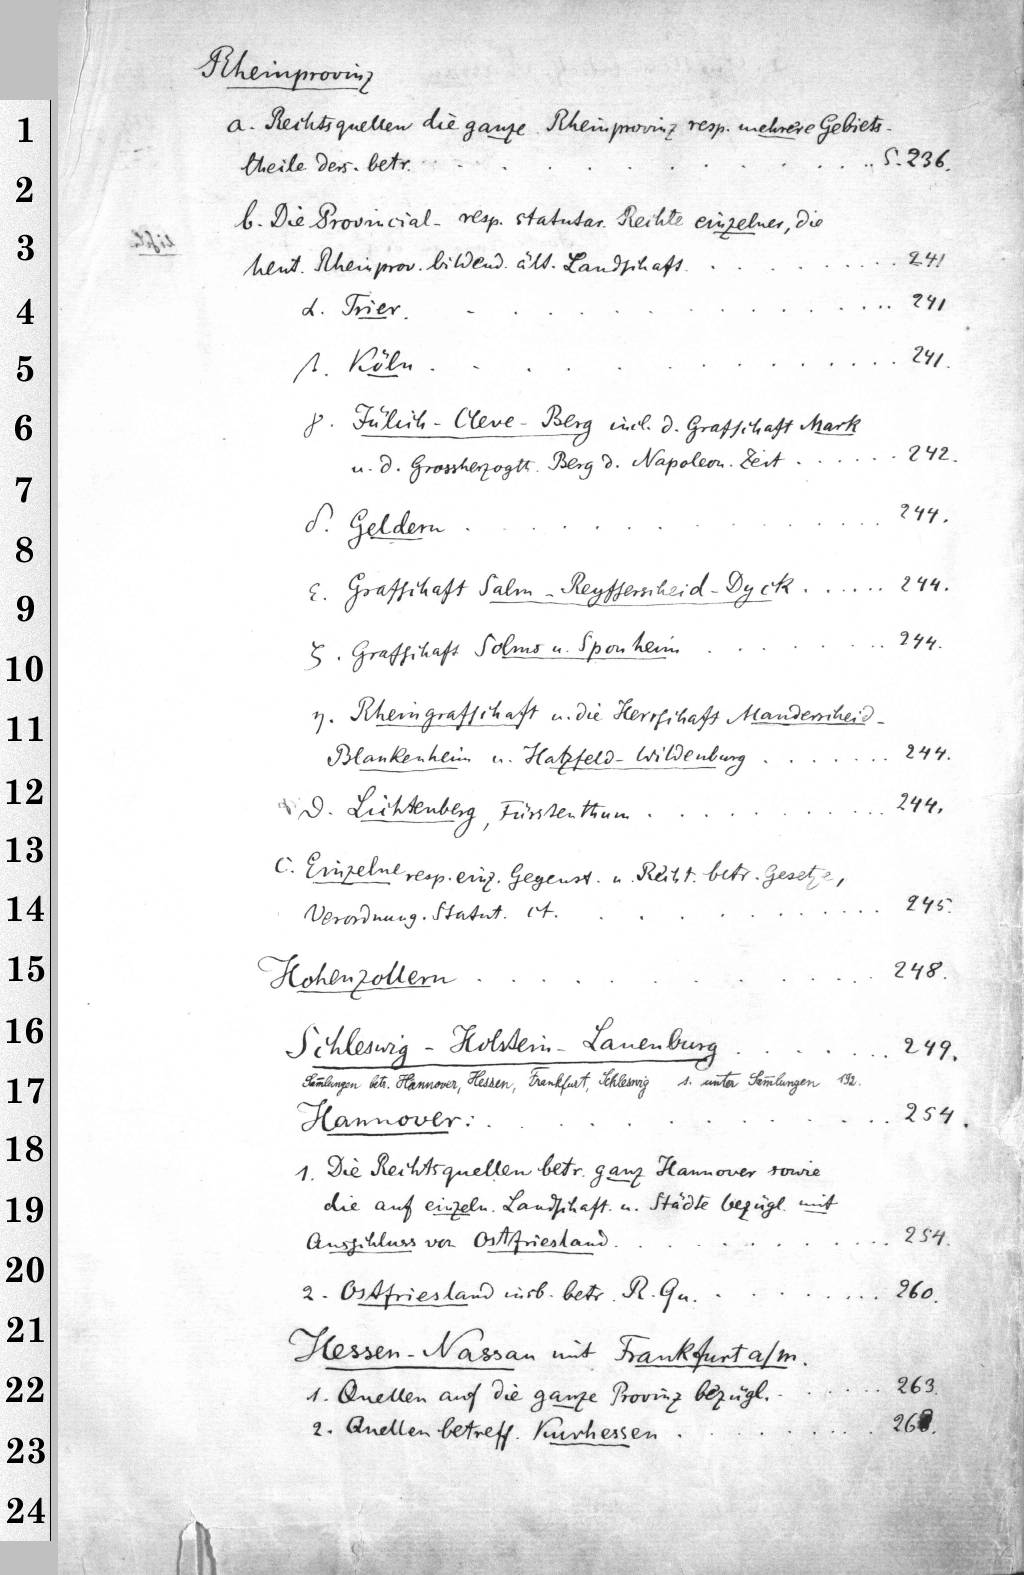 Rheinprovinz
a. Rechtsquellen die ganze Rheinprovinz resp. mehrere Gebiets-
theile ders. betr. . . . . . . . . . S. 236.
b. Die Provincial- resp. statutar. Rechte einzelner, die
heut. Rheinprov. bildend. ält. Landschaft. . . . . . . . . 241
α. Trier. . . . . . . . . . 241
β. Köln . . . . . . . . . . 241.
γ. Jülich-Cleve-Berg incl. d. Grafschaft Mark
u. d. Grossherzogtt. Berg d. Napoleon. Zeit . . . . . . 242.
δ. Geldern . . . . . . . . . . 244.
ε. Grafschaft Salm-Reyfferscheid-Dyck . . . . . . 244.
ζ. Grafschaft Solms u. Sponheim . . . . . . . 244.
η. Rheingrafschaft u. die Herrschaft Manderscheid-
Blankenheim u. Hatzfeld-Wildenburg . . . . . . . 244.
ϑ. Lichtenberg, Fürstenthum . . . . . . . . 244.
c. Einzelne resp. einz. Gegenst. u. Recht. betr. Gesetze,
Verordnung. Statut. ct. . . . . . . . . 245.
Hohenzollern . . . . . . . . . . 248.
Schleswig-Holstein-Lauenburg . . . . . . 249.
Samlungen betr. Hannover, Hessen, Frankfurt, Schleswig s. unter Samlungen 192.
Hannover: . . . . . . . . . . 254.
1. Die Rechtsquellen betr. ganz Hannover sowie
die auf einzeln. Landschaft. u. Städte bezügl. mit
Ausschluss von Ostfriesland. . . . . . . . . 254.
2. Ostfriesland insb. betr. R. Qu. . . . . . . . . 260.
Hessen-Nassau mit Frankfurt a/m.
1. Quellen auf die ganze Provinz bezügl. . . . . . . 263.
2. Quellen betreff. Kurhessen . . . . . . . . 268.
1
2
3
4
5
6
7
8
9
10
11
12
13
14
15
16
17
18
19
20
21
22
23
24